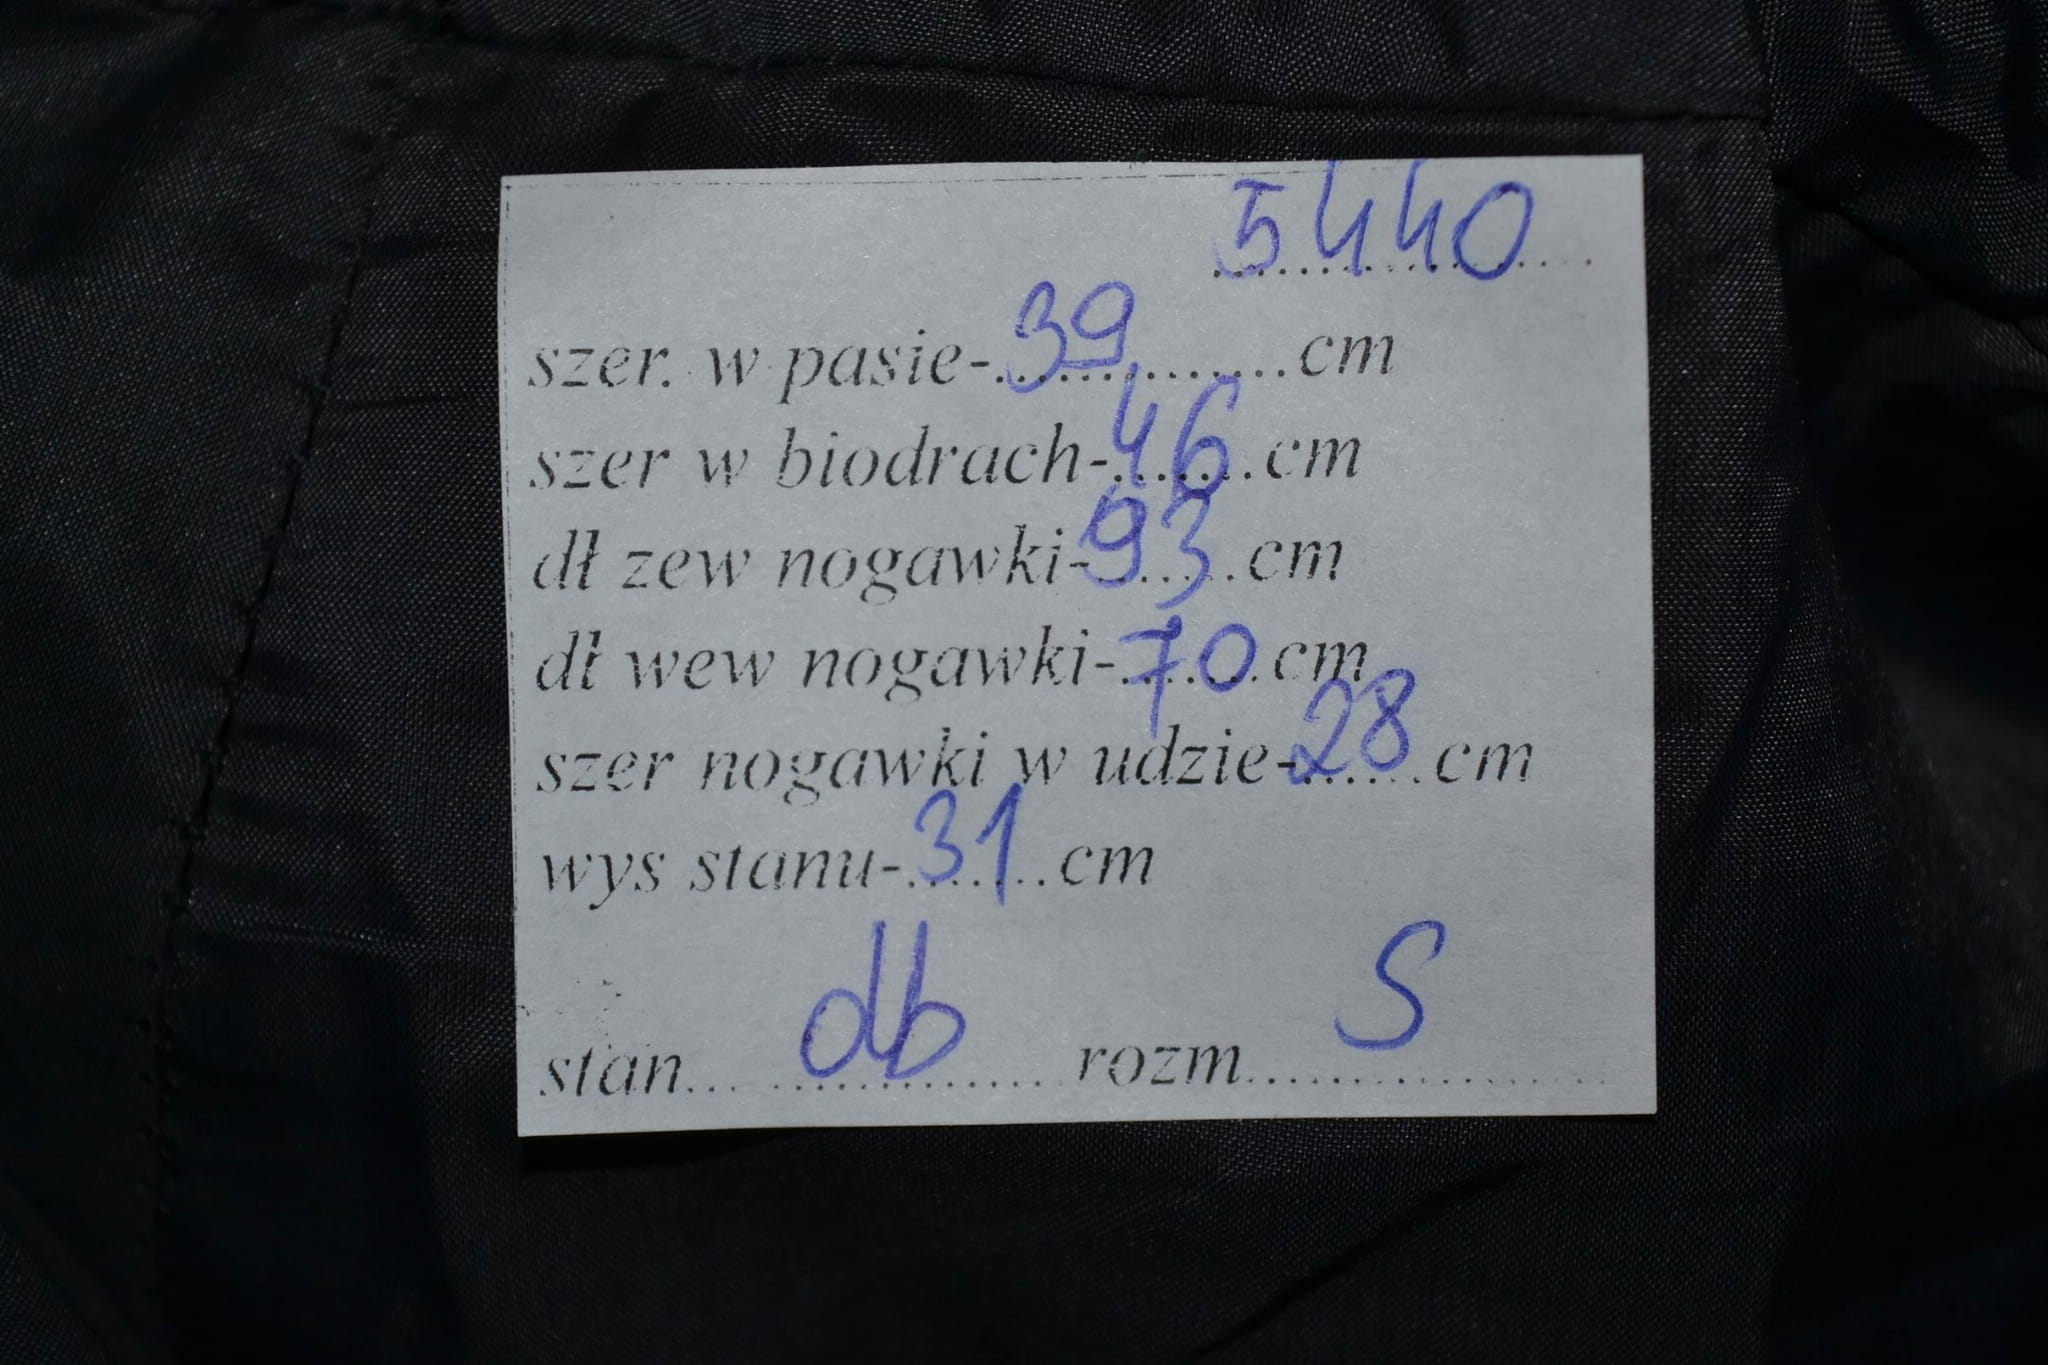 5440
szer. w pasie-39...............cm
szer w biodrach-46.......cm
dł zew nogawki-93.......cm
dł wew nogawki-70.......cm
szer nogawki w udzie-28......cm
wys stanu-31.......cm
stan... db ............... rozm... S ...............